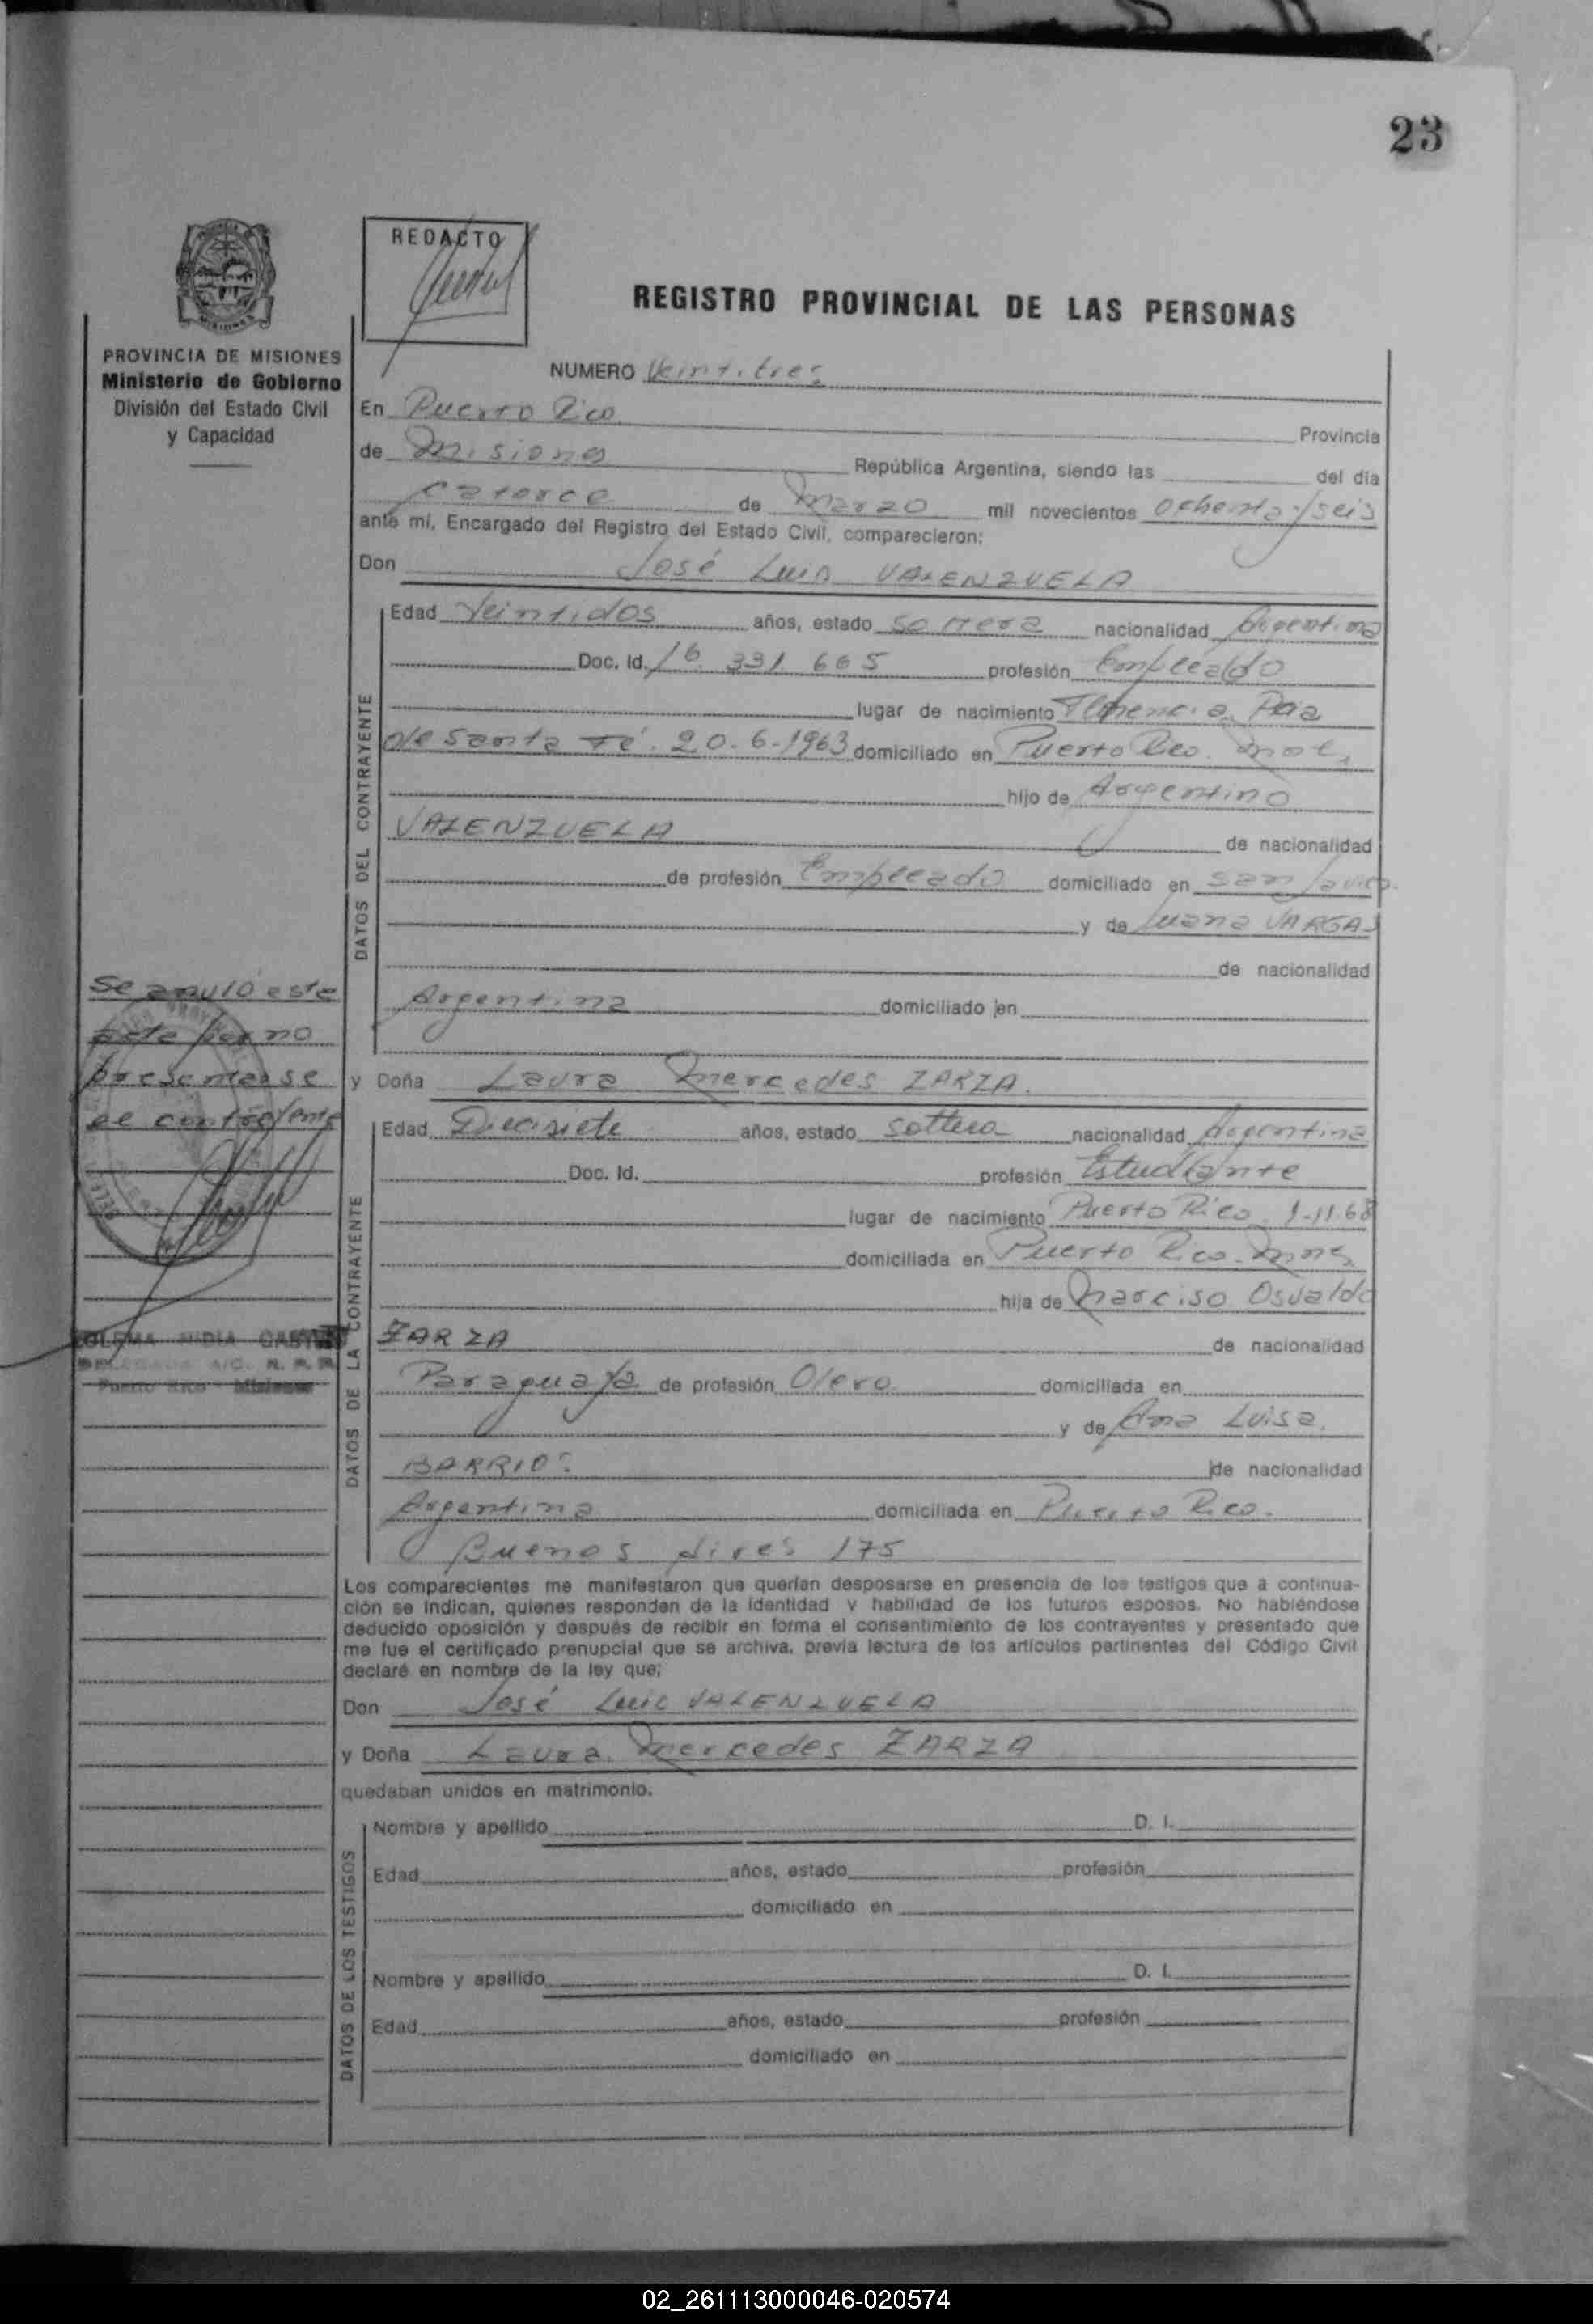 23
REDACTO
REGISTRO PROVINCIAL DE LAS PERSONAS
PROVINCIA DE MISIONES
Ministerio de Gobierno
División del Estado Civil
y Capacidad
NUMERO Veintitres
En Puerto Rico Provincia
de Misiones República Argentina, siendo las del día
catorce de Marzo mil novecientos ochenta y seis
ante mí, Encargado del Registro del Estado Civil, comparecieron:
Don José Luis VALENZUELA
DATOS DEL CONTRAYENTE
Edad Veintidos años, estado soltero nacionalidad Argentina
Doc. Id. 16 331 665 profesión Empleado
lugar de nacimiento Paz
de Santa Fé. 20-6-1963 domiciliado en Puerto Rico.
hijo de Argentino
VALENZUELA de nacionalidad
de profesión Empleado domiciliado en San Javier
y de Juana VARGAS
de nacionalidad
Argentina domiciliado en
Se anuló este
acto por no
presentarse
el contrayente
y Doña Laura Mercedes ZARZA.
DATOS DE LA CONTRAYENTE
Edad Diecisiete años, estado soltera nacionalidad Argentina
Doc. Id. profesión Estudiante
lugar de nacimiento Puerto Rico 1-11-68
domiciliada en Puerto Rico-Mnes
hija de Narciso Osvaldo
ZARZA de nacionalidad
Paraguaya de profesión Olero domiciliada en
y de Ana Luisa.
BARRIOS de nacionalidad
Argentina domiciliada en Puerto Rico.
Buenos Aires 175
NIDIA
A/C. N. R. P.
Puerto Rico - Misiones
Los comparecientes me manifestaron que querían desposarse en presencia de los testigos que a continua-
ción se indican, quienes responden de la identidad y habilidad de los futuros esposos. No habiéndose
deducido oposición y después de recibir en forma el consentimiento de los contrayentes y presentado que
me fue el certificado prenupcial que se archiva, previa lectura de los artículos pertinentes del Código Civil
declaré en nombre de la ley que;
Don José Luis VALENZUELA
y Doña Laura Mercedes ZARZA
quedaban unidos en matrimonio.
DATOS DE LOS TESTIGOS
Nombre y apellido D. I.
Edad años, estado profesión
domiciliado en
Nombre y apellido D. I.
Edad años, estado profesión
domiciliado en
02_261113000046-020574